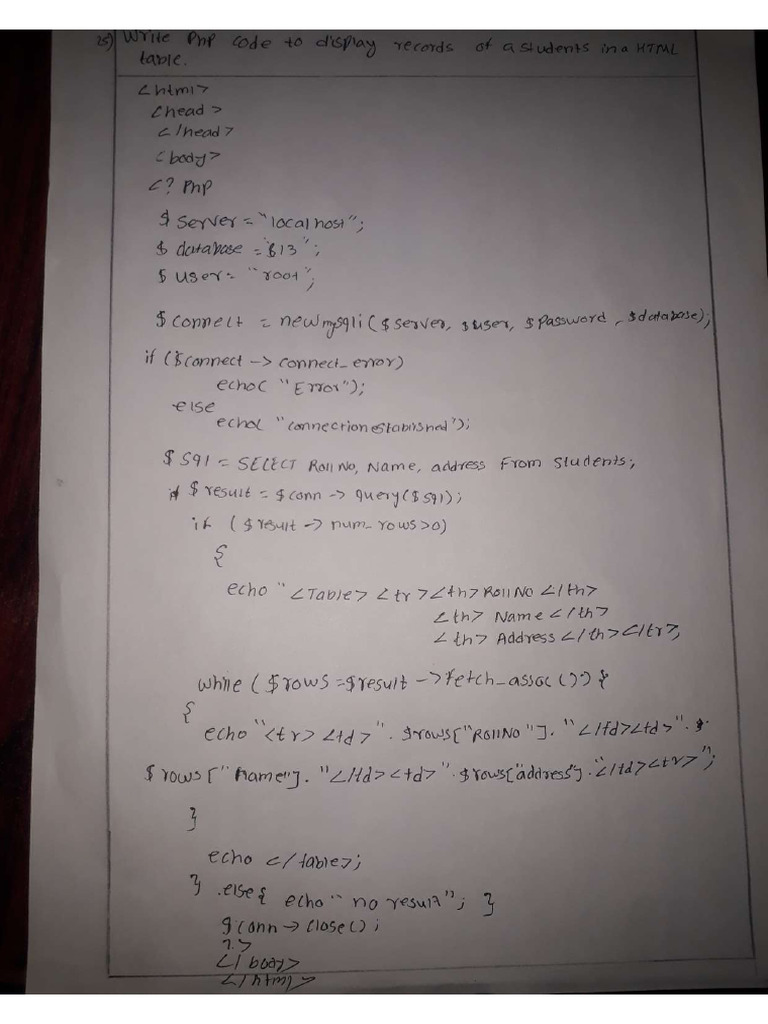 25) Write Php code to display records of a students in a HTML
table.
<html>
<head>
</head>
<body>
<? Php
$ Server = "localhost";
$ database = "B13";
$ user = "root";
$ connect = new mysqli ($ server, $ user, $ Password, $ database);
if ($connect -> connect_error)
echo( "Error");
else
echo( "connection established");
$ sql = SELECT Roll No, Name, address From Students;
$ result = $ conn -> query($ sql);
if ( $ result -> num_rows>0)
{
echo " <Table> <tr><th>Roll No </th>
<th> Name </th>
<th> Address </th></tr>,
while ( $ rows = $result -> fetch_assoc ()) {
{
echo "<tr> <td>". $rows["RollNo"]. "</td><td>". $
$ rows ["Name"]. "</td><td>". $rows["address"]."</td><tr>";
}
echo </table>;
} else { echo "no result"; }
$conn -> close();
?>
</body>
</html>